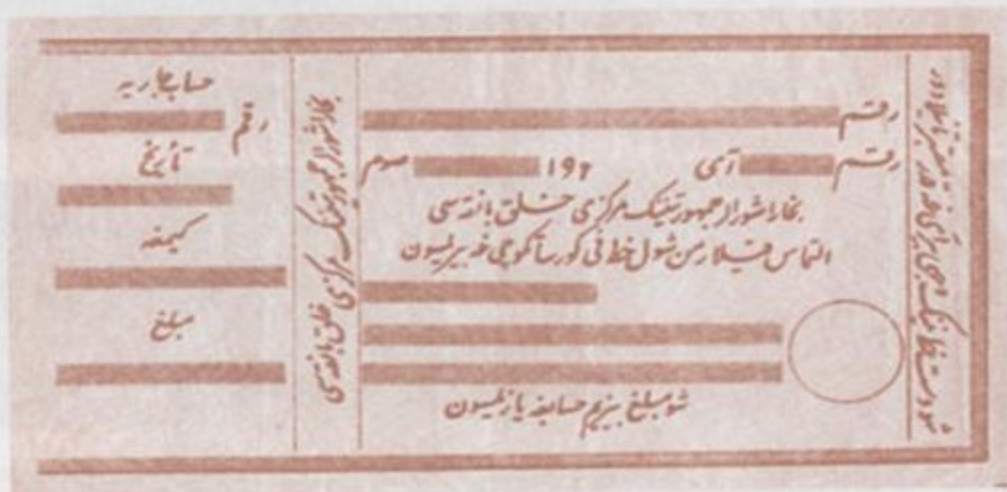 رقم
رقم آی ۱۹۲ سوم
بخارا شورالر جمهوریتینیک مرکزی خلق بانقه‌سی
التماس قیلارمن شول خط نی کورساتکوچی غه بیریلسون
شو مبلغ بیزیم حسابغه یازیلسون
بخارا شورالر جمهوریتینیک مرکزی خلق بانقه‌سی
حساب جاریه
رقم
تأریخ
کیمغه
مبلغ